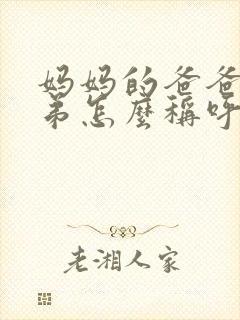 妈妈的爸爸
弟怎麼稱呼
老湘人家